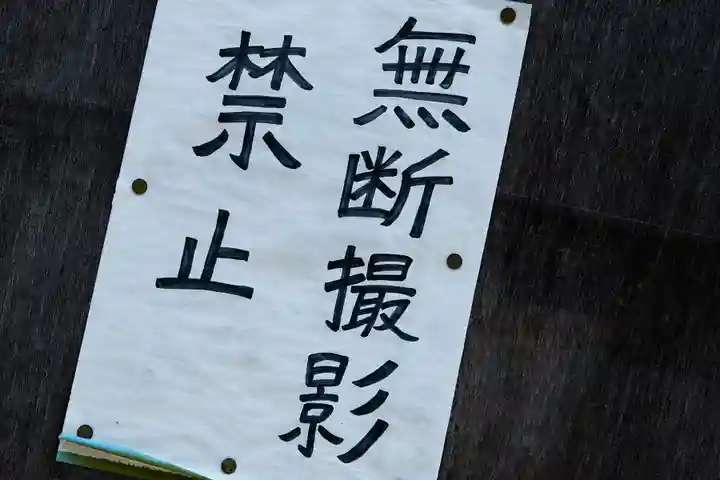 無断撮影
禁止